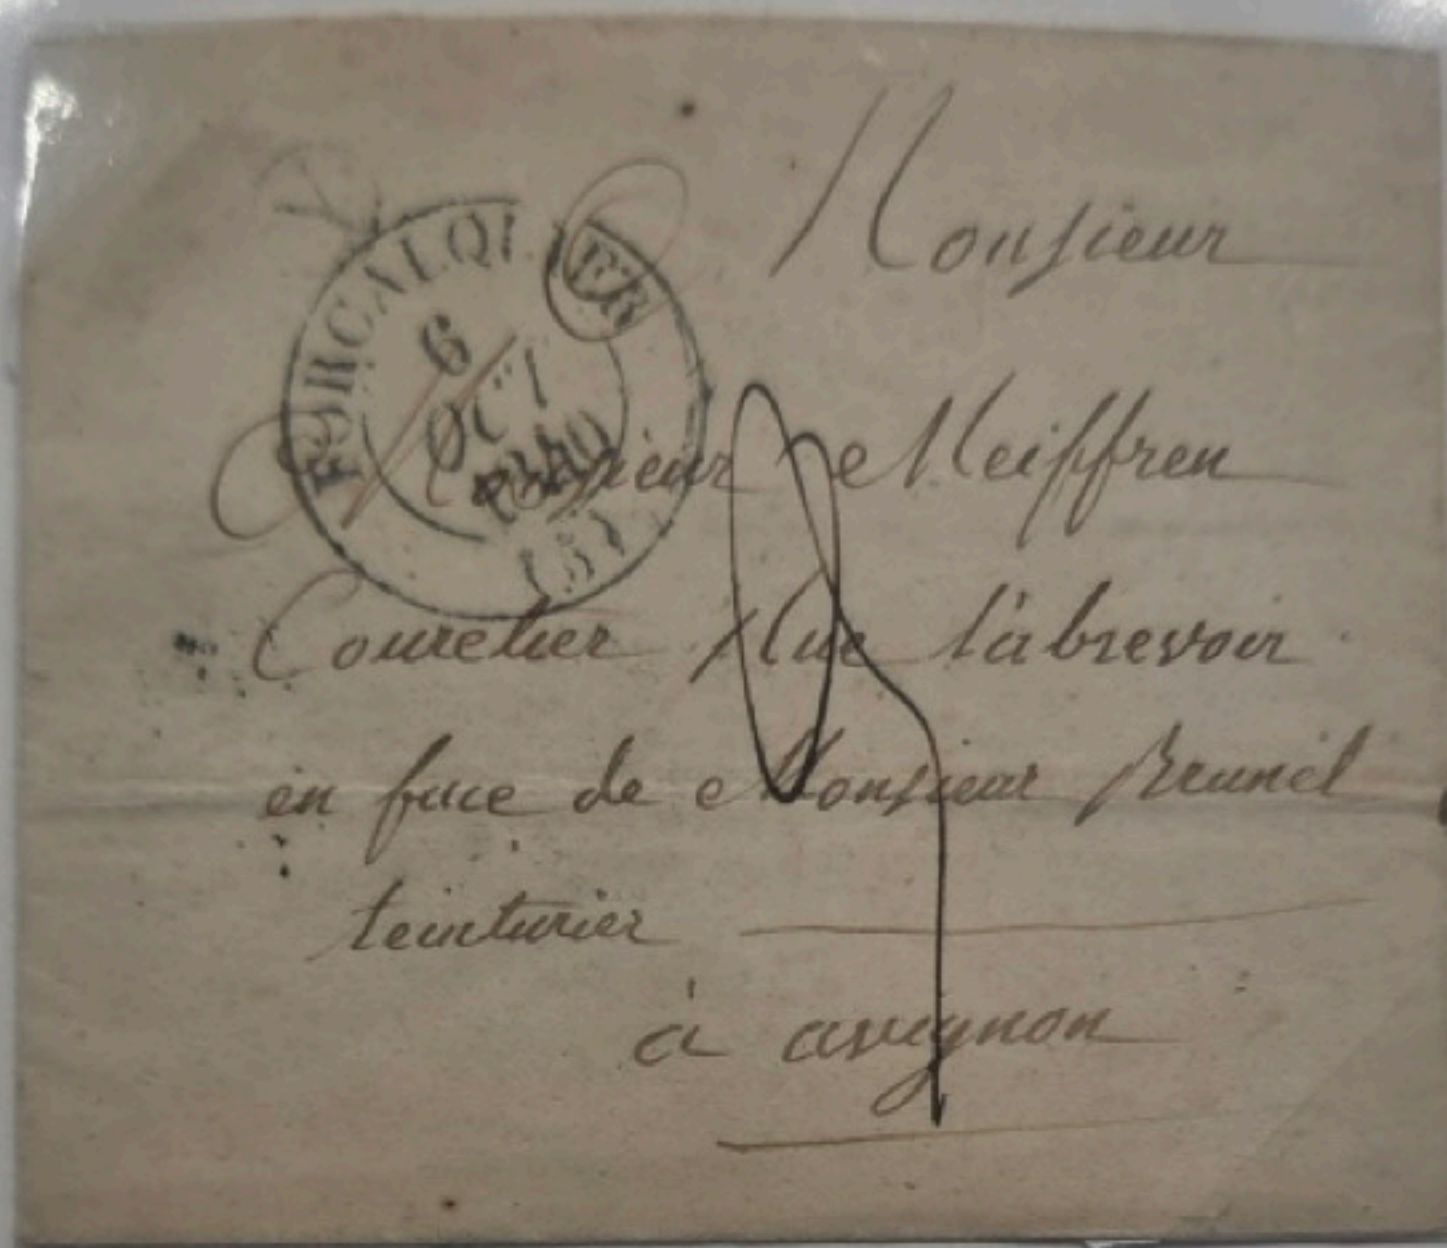 FORCALQUIER
6
OCT
1840
(5)
Monsieur
Monsieur Meiffren
Courelier Rue l'abrevoir
en face de Monsieur Brunel
teinturier
à avignon